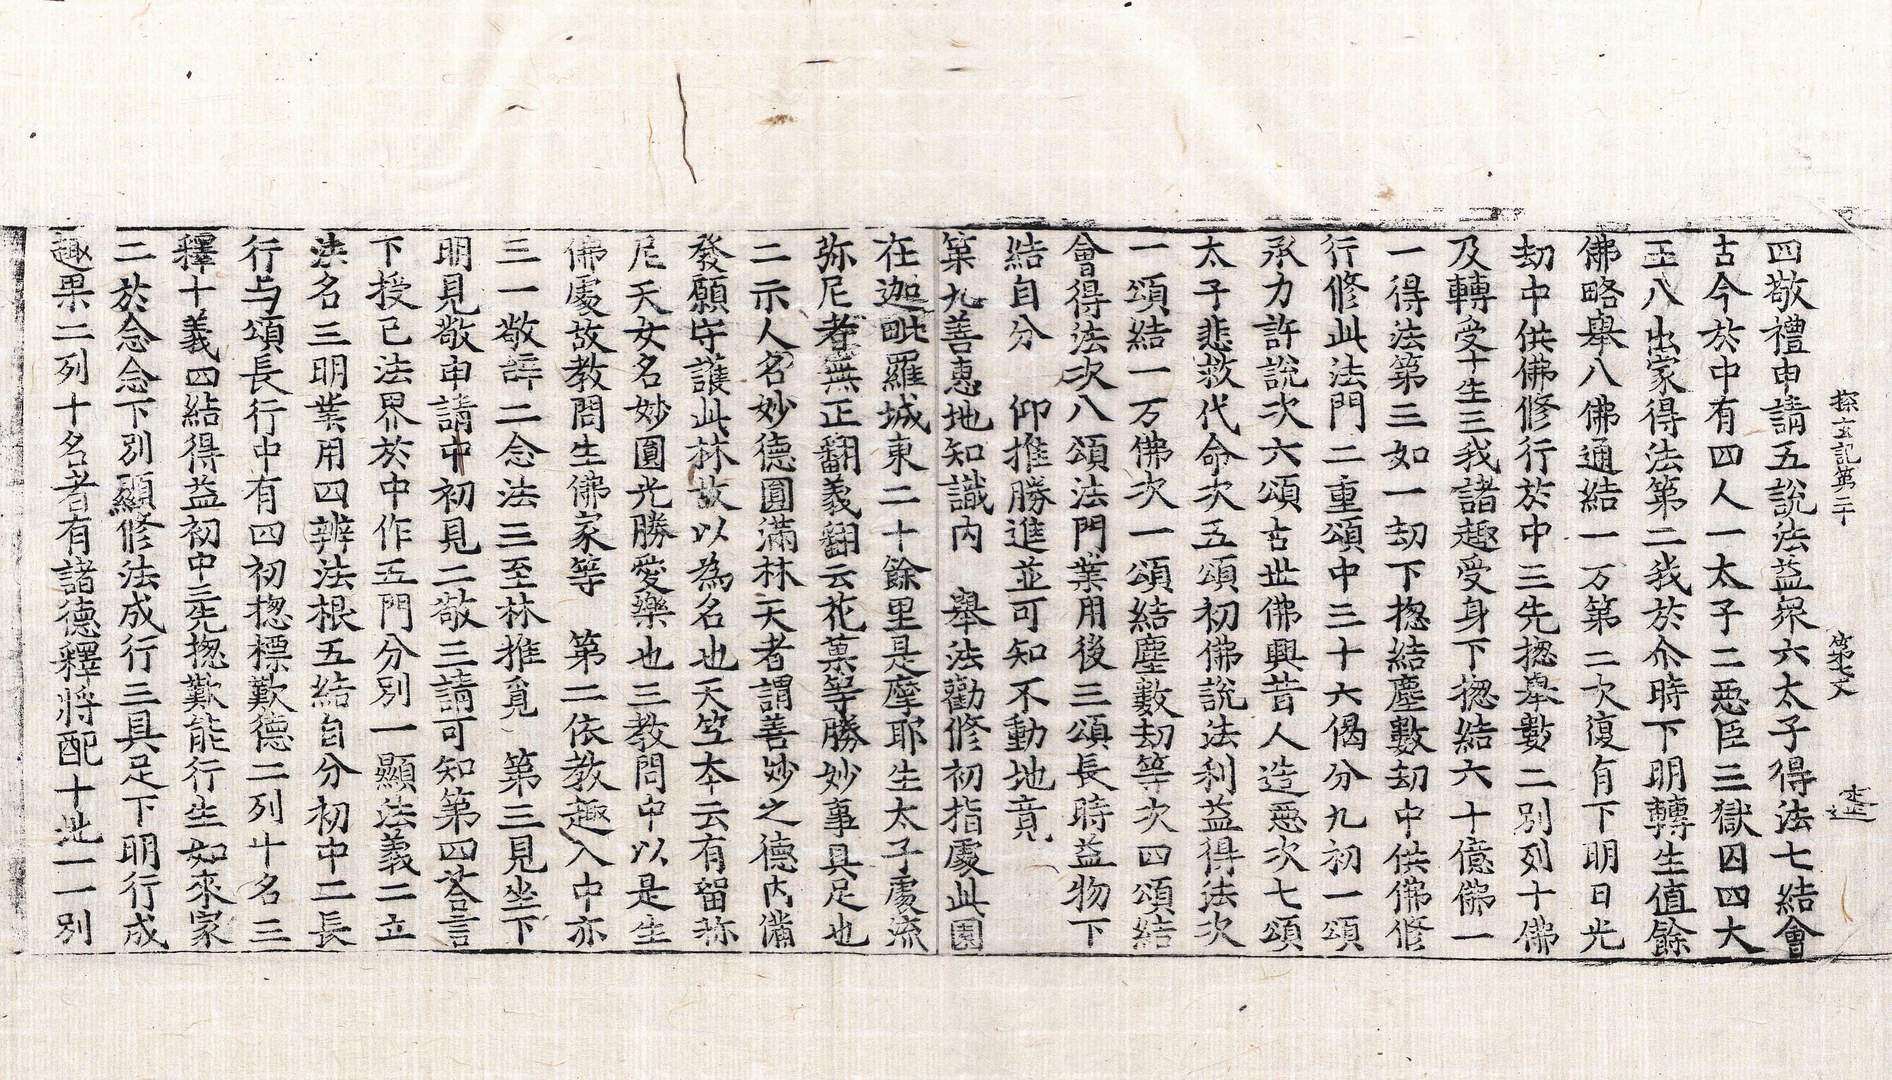 探玄記第二十　第七丈　查
四敬禮申請五說法益衆六太子得法七結會
古今於中有四人一太子二惡臣三獄囚四大
王八出家得法第二我於尒時下明轉生值餘
佛略舉八佛通結一万第二次復有下明日光
劫中供佛修行於中三先揔舉數二別列十佛
及轉受十生三我諸趣受身下揔結六十億佛一
一得法第三如一劫下揔結塵數劫中供佛修
行修此法門二重頌中三十六偈分九初一頌
承力許說次六頌古世佛興昔人造惡次七頌
太子悲救代命次五頌初佛說法利益得法次
一頌結一万佛次一頌結塵數劫等次四頌結
會得法次八頌法門業用後三頌長時益物下
結自分　仰推勝進並可知不動地竟
第九善惠地知識內　舉法勸修初指處此園
在迦毗羅城東二十餘里是摩耶生太子處流
弥尼者無正翻義翻云花菓等勝妙事具足也
二示人名妙德圓滿林天者謂善妙之德內備
發願守護此林故以為名也天竺本云有留弥
尼天女名妙圓光勝愛樂也三教問中以是生
佛處故教問生佛家等　第二依教趣入中亦
三一敬辭二念法三至林推覓　第三見坐下
明見敬申請中初見二敬三請可知第四荅言
下授已法界於中作五門分別一顯法義二立
法名三明業用四辨法根五結自分初中二長
行与頌長行中有四初揔標歎德二列十名三
釋十義四結得益初中三先揔歎能行生如來家
二於念念下別顯修法成行三具足下明行成
趣果二列十名者有諸德釋將配十地一一別